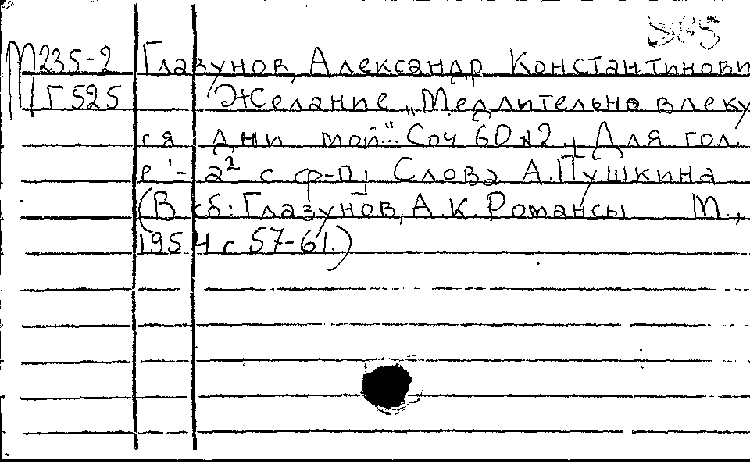 М235-2 Глазунов, Александр Константинови
Г525 Желание „Медлительно влеку
ся дни мои". Соч 60 №2, Для гол.
e¹-a² с ф-п, Слова А.Пушкина
(В сб: Глазунов, А.К. Романсы М.,
1954 с 57-61.)